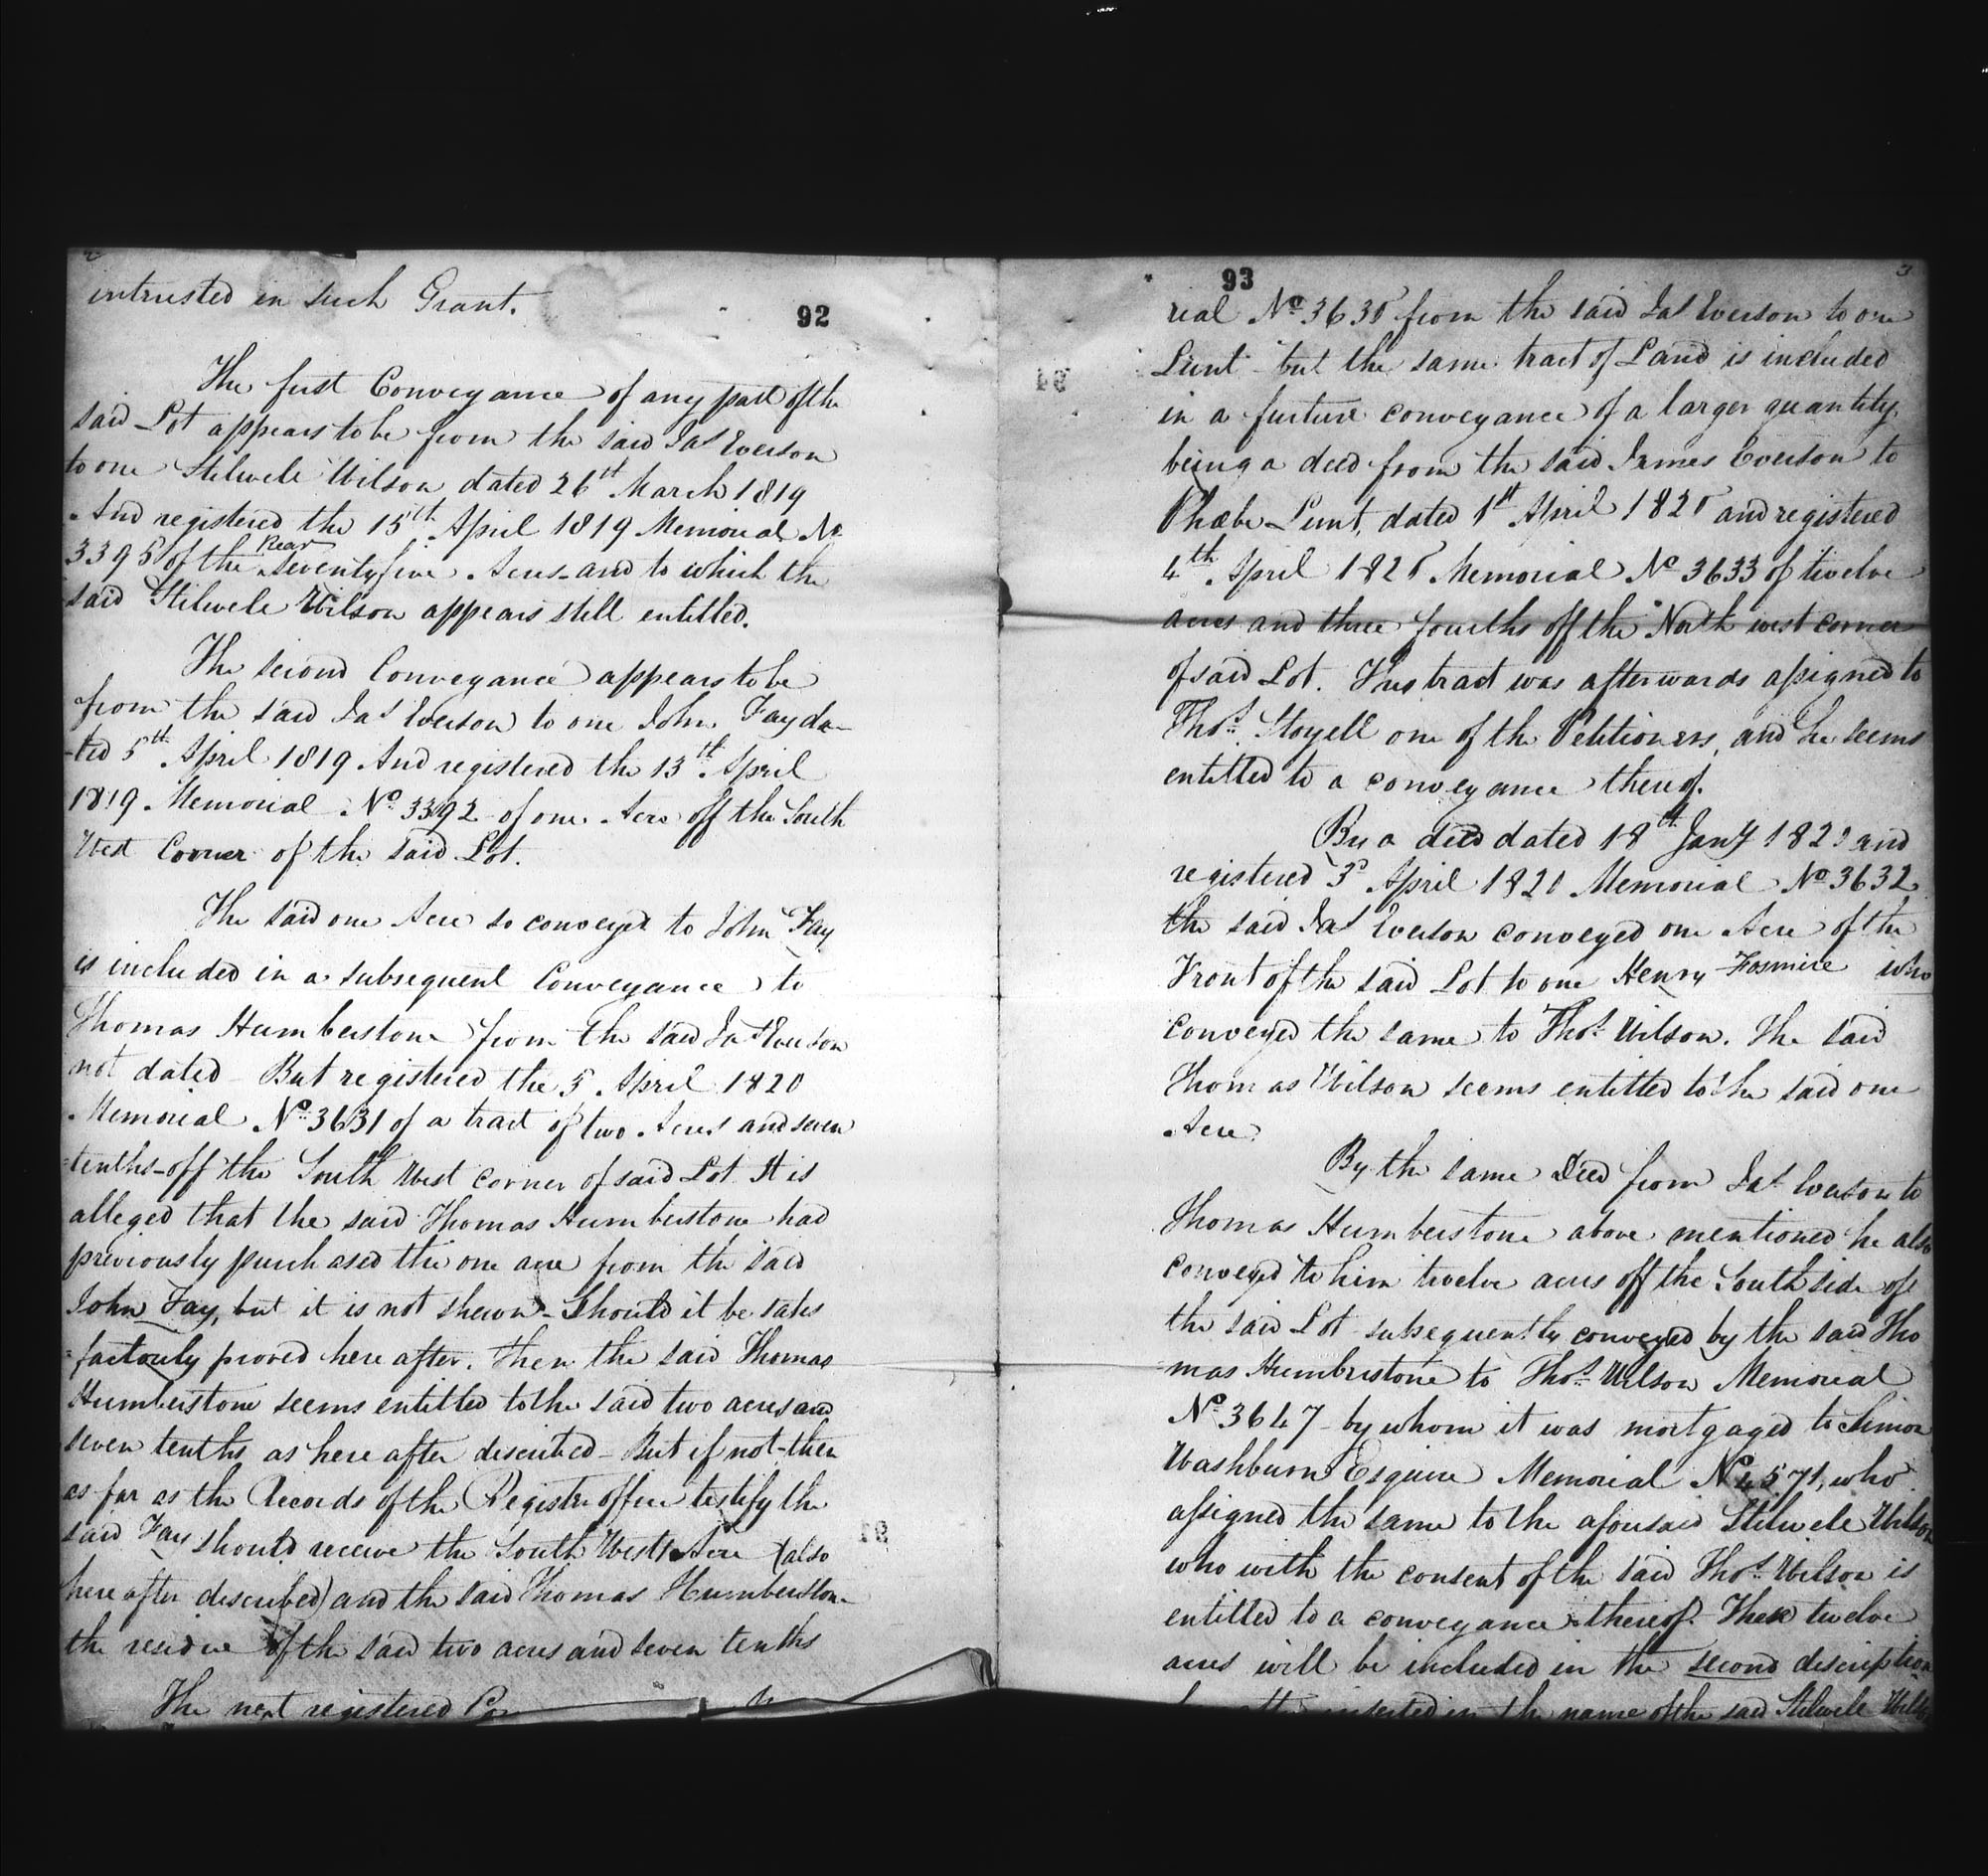 2
intrusted in such Grant.
92
The first Conveyance of any part of the
said Lot appears to be from the said Jas Everson
to one Stilwele Wilson dated 26th March 1819
And registered the 15th April 1819 Memorial No
3395 of the Rear Seventyfive Acres and to which the
said Stilwele Wilson appears still entitled.
The second Conveyance appears to be
from the said Jas Everson to one John Fay da-
-ted 5th April 1819 And registered the 13th April
1819 Memorial No 3392 of one Acre off the South
West Corner of the said Lot.
The said one Acre so conveyed to John Fay
is included in a subsequent Conveyance to
Thomas Humberstone from the said Jas Everson
not dated - But registered the 5 April 1820
Memorial No 3631 of a tract of two Acres and seven
=tenths off the South West corner of said Lot. It is
alleged that the said Thomas Humberstone had
previously purchased the one acre from the said
John Fay, but it is not shewn - Should it be satis
=factorily proved here after. Then the said Thomas
Humberstone seems entitled to the said two acres and
seven tenths as here after described - But if not - then
as far as the Records of the Register office testify the
said Fay should receive the South West Acre (also
here after described) and the said Thomas Humberstone
the residue of the said two acres and seven tenths
The next registered
93
3
rial No from the said Jas Everson to one
Lunt - but the same tract of Land is included
in a furture conveyance of a larger quantity,
being a deed from the said James Everson to
Phœbe Lunt, dated 1st April and registered
4th April Memorial No 3633 of twelve
acres and three fourths off the North west corner
of said Lot. This tract was afterwards assigned to
Thos Stoyell one of the Petitioners, and he seems
entitled to a conveyance thereof.
By a deed dated 18th Jany and
registered 3d April 1820 Memorial No 3632
the said Jas Everson conveyed one Acre of the
Front of the said Lot to one Henry Fosmire who
conveyed the same to Thos Wilson. The said
Thomas Wilson seems entitled to the said one
Acre.
By the same Deed from Jas Everson to
Thomas Humberstone above mentioned he also
conveyed to him twelve acres off the South side of
the said Lot subsequently conveyed by the said Tho
mas Humberstone to Thos Wilson Memorial
No 3647 - by whom it was mortgaged to Simon
Washburn Esquire Memorial No 4571, who
assigned the same to the aforesaid Stilwele Wilson
who with the consent of the said Thos Wilson is
entitled to a conveyance thereof. These twelve
acres will be included in the second description
inserted in the name of the said Stilwele Wilson